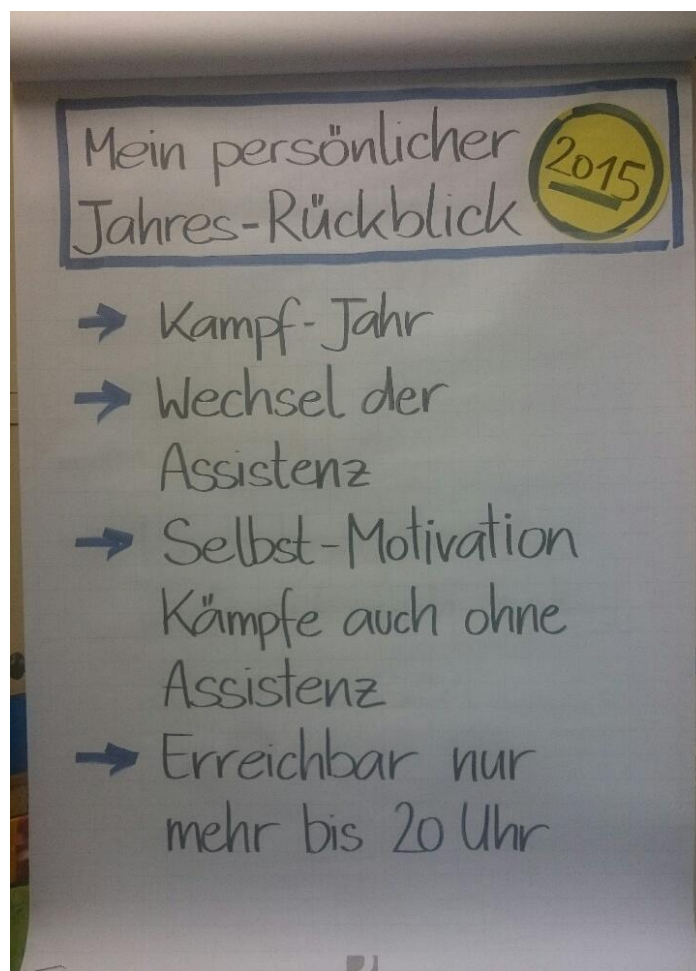 Mein persönlicher
Jahres-Rückblick
2015
→ Kampf-Jahr
→ Wechsel der
Assistenz
→ Selbst-Motivation
Kämpfe auch ohne
Assistenz
→ Erreichbar nur
mehr bis 20 Uhr